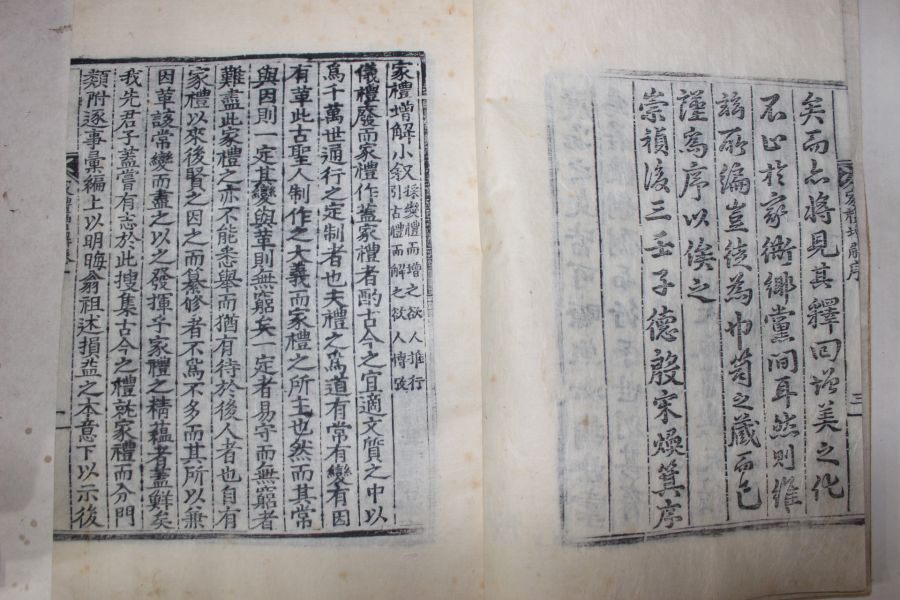 矣而亦將見其釋回增美之化
不止於家衖鄉黨間耳然則維
玆所編豈徒為巾笥之藏而已
謹寫序以俟之
崇禎後三壬子德殷宋煥箕序
三
家禮增解小叙採變禮而增之欲人推行
引古禮而解之欲人博攷
儀禮廢而家禮作蓋家禮者酌古今之宜適文質之中以
爲千萬世通行之定制者也夫禮之爲道有常有變有因
有革此古聖人制作之大義而家禮之所主也然而其常
與因則一定其變與革則無窮矣一定者易守而無窮者
難盡此家禮之亦不能悉舉而猶有待於後人者也自有
家禮以來後賢之因之而纂修者不爲不多而其所以兼
因革該常變而盡之以之發揮乎家禮之精蘊者蓋鮮矣
我先君子蓋嘗有志於此搜集古今之禮就家禮而分門
類附逐事彙編上以明晦翁祖述損益之本意下以示後
一